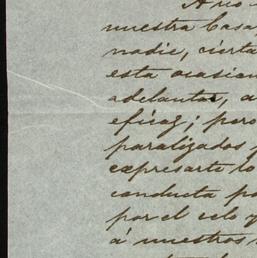 A rio
nuestra Casa,
nadie, cierta
esta ocasion
adelantar, a
eficaz; pero
paralizados
expresarte lo
conducta po
por el celo y
á nuestros